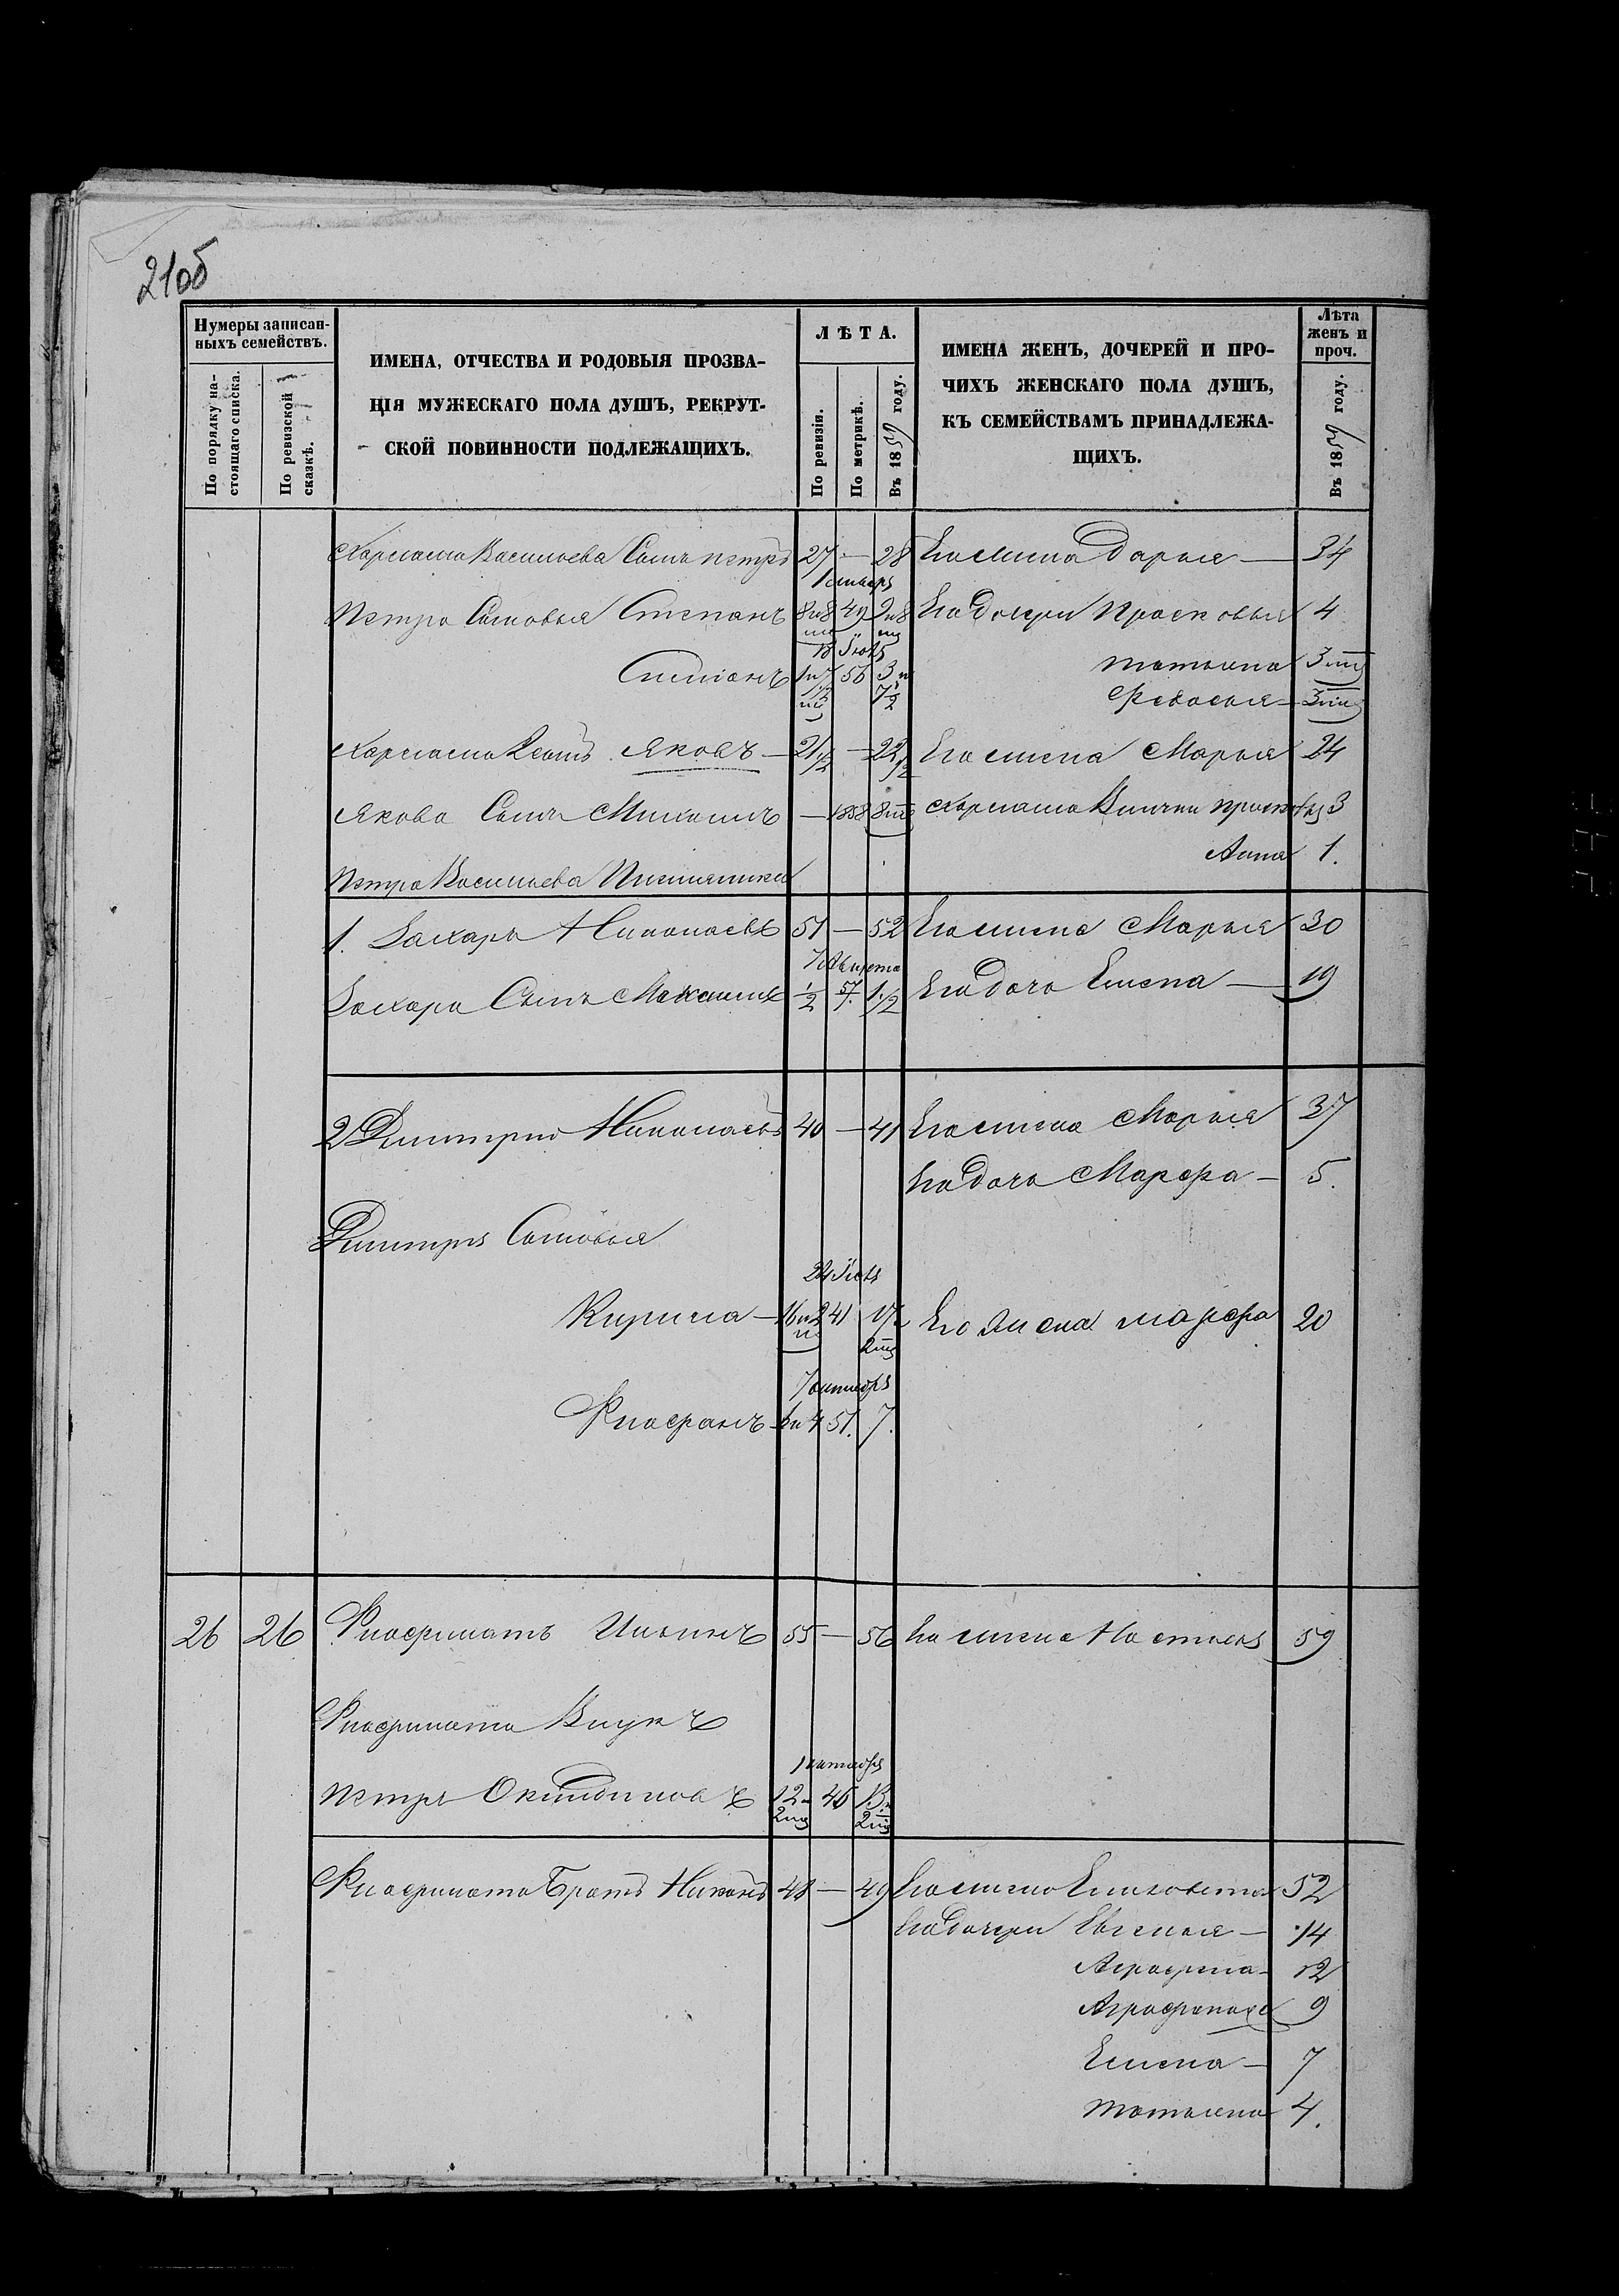 21об
Нумеры записан-
ныхъ семействъ.
По порядку на-
стоящаго списка.
По ревизской
сказкѣ.
ИМЕНА, ОТЧЕСТВА И РОДОВЫЯ ПРОЗВА-
НІЯ МУЖЕСКАГО ПОЛА ДУШЪ, РЕКРУТ-
СКОЙ ПОВИННОСТИ ПОДЛЕЖАЩИХЪ.
ЛѢТА.
По ревизіи.
По метрикѣ.
Въ 1859 году.
ИМЕНА ЖЕНЪ, ДОЧЕРЕЙ И ПРО-
ЧИХЪ ЖЕНСКАГО ПОЛА ДУШЪ,
КЪ СЕМЕЙСТВАМЪ ПРИНАДЛЕЖА-
ЩИХЪ.
Лѣта
женъ и
проч.
Въ 1859 году.
Васильева Сынъ петръ 27 — 28 Его жена Дарья — 34
петра Сыновья Степанъ 49 Его дочери Прасковья 4
56 татьяна 3
Федосья 3
Яковъ — 21 1/2 — 22 1/2 Его жена Марья 24
Якова Сынъ Михаилъ — 1858
Анна 1.
петра Васильева Племянники
1. Захаръ Николаевъ 51 — 52 Его жена Марья 30
7 Августа
Захара Сынъ Максимъ 1/2 57. 1 1/2 Его дочь Елена — 19
2 Дмитрій Николаевъ 40 — 41 Его жена Марья 37
Его дочь Марфа — 5.
Дмитрія Сыновья
Кирила — 41 17 Его жена марфа 20
7 октября
51. 7.
26 26 Ильинъ 55 — 56 Его жена Настасья 59
Внукъ
1 октября
петръ 12 46 13
Братъ Никонъ 48 — 49 Его жена Елизовета 52
Его дочери Евгенья — 14
Аграфена — 12
Аграфена 9
Елена — 7
татьяна 4.